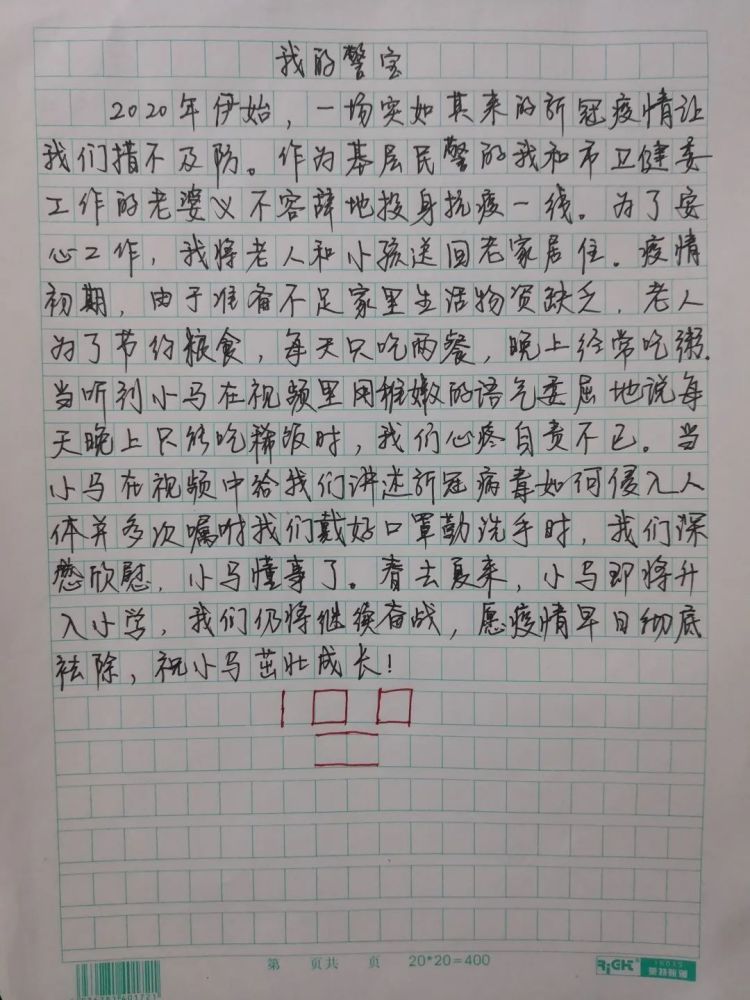 我的警宝
2020年伊始，一场突如其来的新冠疫情让
我们措不及防。作为基层民警的我和市卫健委
工作的老婆义不容辞地投身抗疫一线。为了安
心工作，我将老人和小孩送回老家居住．疫情
初期，由于准备不足家里生活物资缺乏．老人
为了节约粮食，每天只吃两餐，晚上经常吃粥．
当听到小马在视频里用稚嫩的语气委屈地说每
天晚上只能吃稀饭时，我们心疼自责不已。当
小马在视频中给我们讲述新冠病毒如何侵入人
体并多次嘱咐我们戴好口罩勤洗手时，我们深
懋欣慰．小马懂事了。春去夏来，小马即将升
入小学，我们仍将继续奋战，愿疫情早日彻底
祛除，祝小马茁壮成长！
第 页共 页 20*20=400